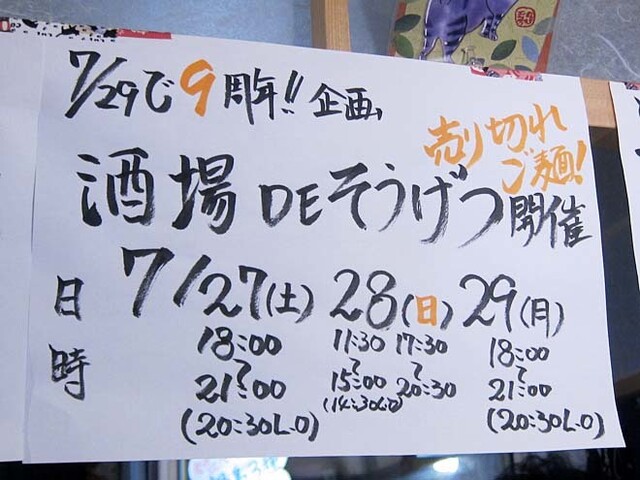 7/29で9周年!!企画
売り切れ
ご麺!
酒場DEそうげつ開催
日時
7/27(土) 28(日) 29(月)
18:00 11:30 17:30 18:00
〜 〜 〜 〜
21:00 15:00 20:30 21:00
(20:30L.O) (14:30L.O) (20:30L.O)